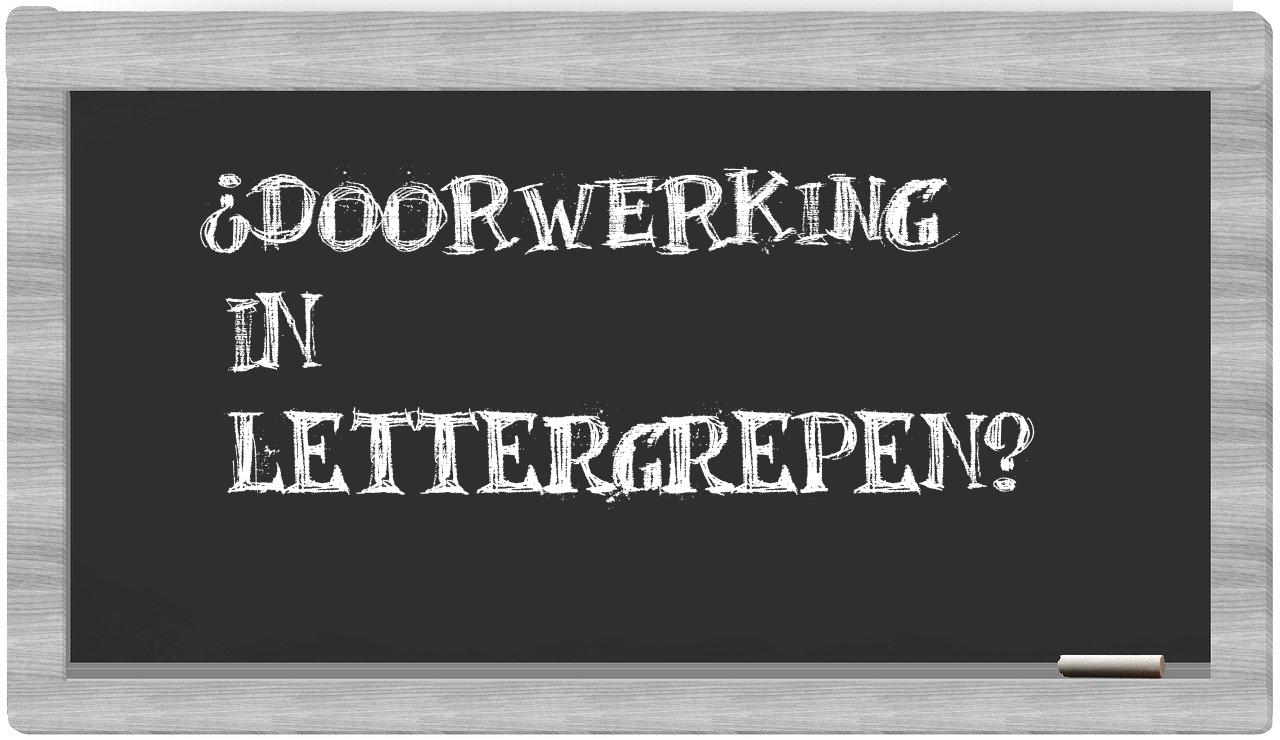 ¿DOORWERKING
IN
LETTERGREPEN?